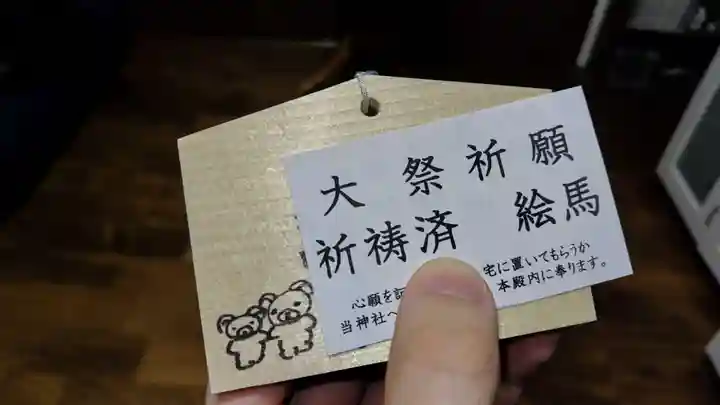 大祭祈願
祈祷済 絵馬
心願を記 宅に置いてもらうか
当神社へ 本殿内に奉ります。